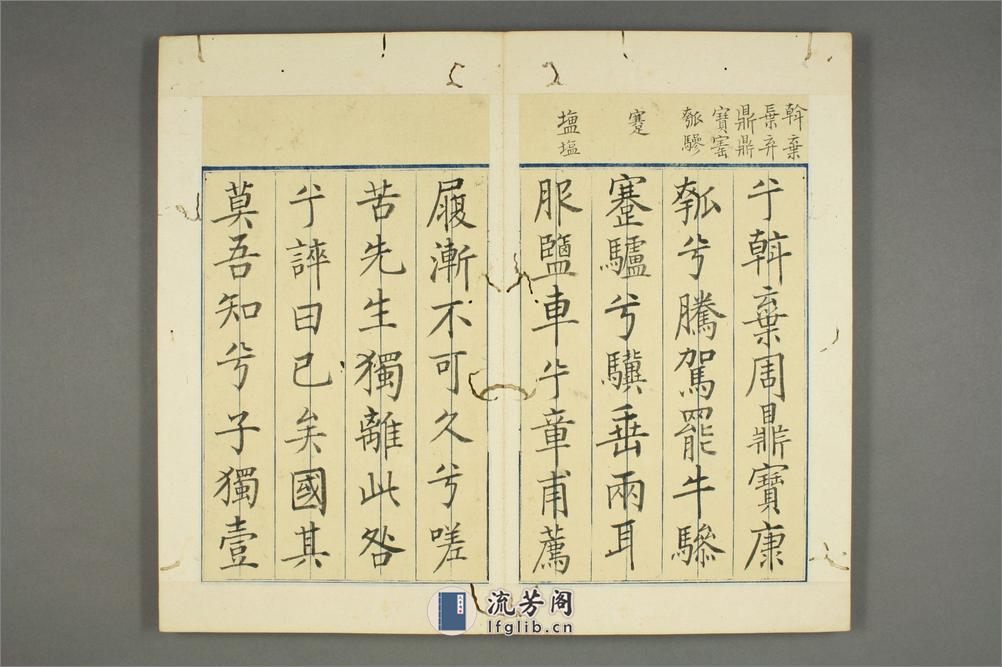 斡棄
棄弃
鼎鼎
寳寚
瓠驂
蹇
塩塩
亏斡棄周鼎寶康
瓠兮騰駕罷牛驂
蹇驢兮驥垂兩耳
服鹽車亏章甫薦
屨漸不可久兮嗟
苦先生獨離此咎
亏誶曰已矣國其
莫吾知兮子獨壹
流芳阁
lfglib.cn